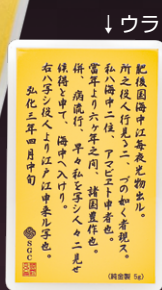 ↓ウラ
肥後国海中江毎夜光物出ル。
所之役人行見るニ、づの如く者現ス。
私ハ海中ニ住、アマビヱト申者也。
當年より六ヶ年之間、諸国豊作也。
併、病流行、早々私ヲ写シ人々ニ見せ
候得と申て、海中へ入けり。
右ハ写シ役人より江戸江申来ル写也。
弘化三年四月中旬
SGC
(純金製 5g)